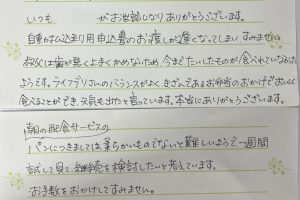 いつも がお世話になりありがとうございます。
自動払込み利用申込書のお渡しが遅くなってしまいすみません。
叔父は歯が悪くよくかめないため今までたいしたものが食べれていなかった
ようです。ライフデリさんのバランスがよくきざんであるお弁当のおかげでおいしく
食べることができ、元気も出たと言っています。本当にありがとうございます。
朝の配食サービスの
パンにつきましては柔らかいものでないと難しいようで一週間
試して見て継続を検討したいと考えています。
お手数をおかけしてすみません。